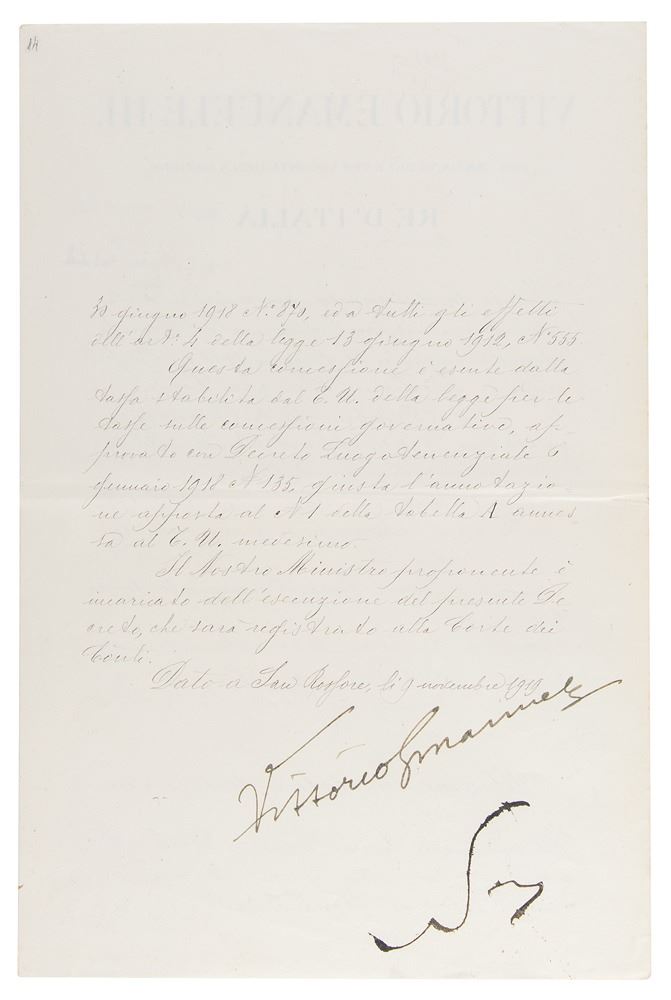 14
30 giugno 1918 N.° 870, ed a tutti gli effetti
dell'art.° 4 della legge 13 giugno 1912, N.° 555.
Questa concessione è esente dalla
tassa stabilita dal T. U. della legge per le
tasse sulle concessioni governative, ap-
provato con Decreto Luogotenenziale 6
gennaio 1918 N.° 135, giusta l'annotazio-
ne apposta al N.° 1 della tabella A annes
sa al T. U. medesimo.
Il Nostro Ministro proponente è
incaricato dell'esecuzione del presente De-
creto, che sarà registrato alla Corte dei
Conti.
Dato a San Rossore, li 9 novembre 1919
Vittorio Emanuele